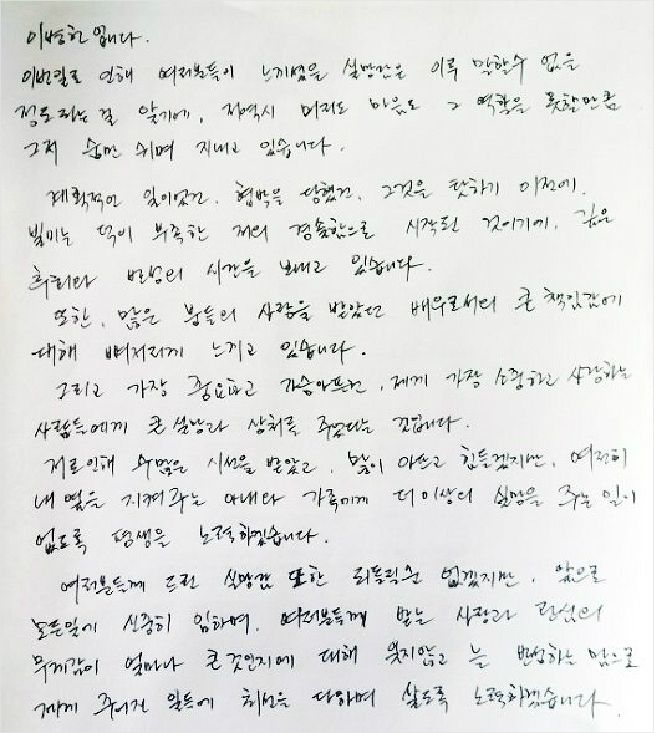 이병헌 입니다.
이번일로 인해 여러분들이 느끼셨을 실망감은 이루 말할수 없을
정도라는걸 알기에, 저역시 머리도 마음도 그 역할을 못할만큼
그저 숨만 쉬며 지내고 있습니다.
계획적인 일이었건, 협박을 당했건, 그것을 탓하기 이전에
빌미는 덕이 부족한 저의 경솔함으로 시작된 것이기에, 깊은
후회와 반성의 시간을 보내고 있습니다.
또한, 많은 분들의 사랑을 받았던 배우로서의 큰 책임감에
대해 뼈저리게 느끼고 있습니다.
그리고 가장 중요하고 가슴아픈건, 제게 가장 소중하고 사랑하는
사람들에게 큰 실망과 상처를 주었다는 것입니다.
저로인해 수많은 시선을 받았고, 많이 아프고 힘들겠지만, 여전히
내 옆을 지켜주는 아내와 가족에게 더이상의 실망을 주는 일이
없도록 평생을 노력하겠습니다.
여러분들께 드린 실망감 또한 되돌릴순 없겠지만, 앞으로
모든일에 신중히 임하며, 여러분들께 받는 사랑과 관심의
무게감이 얼마나 큰것인지에 대해 잊지않고 늘 반성하는 맘으로
제게 주어진 일들에 최선을 다하며 살도록 노력하겠습니다.